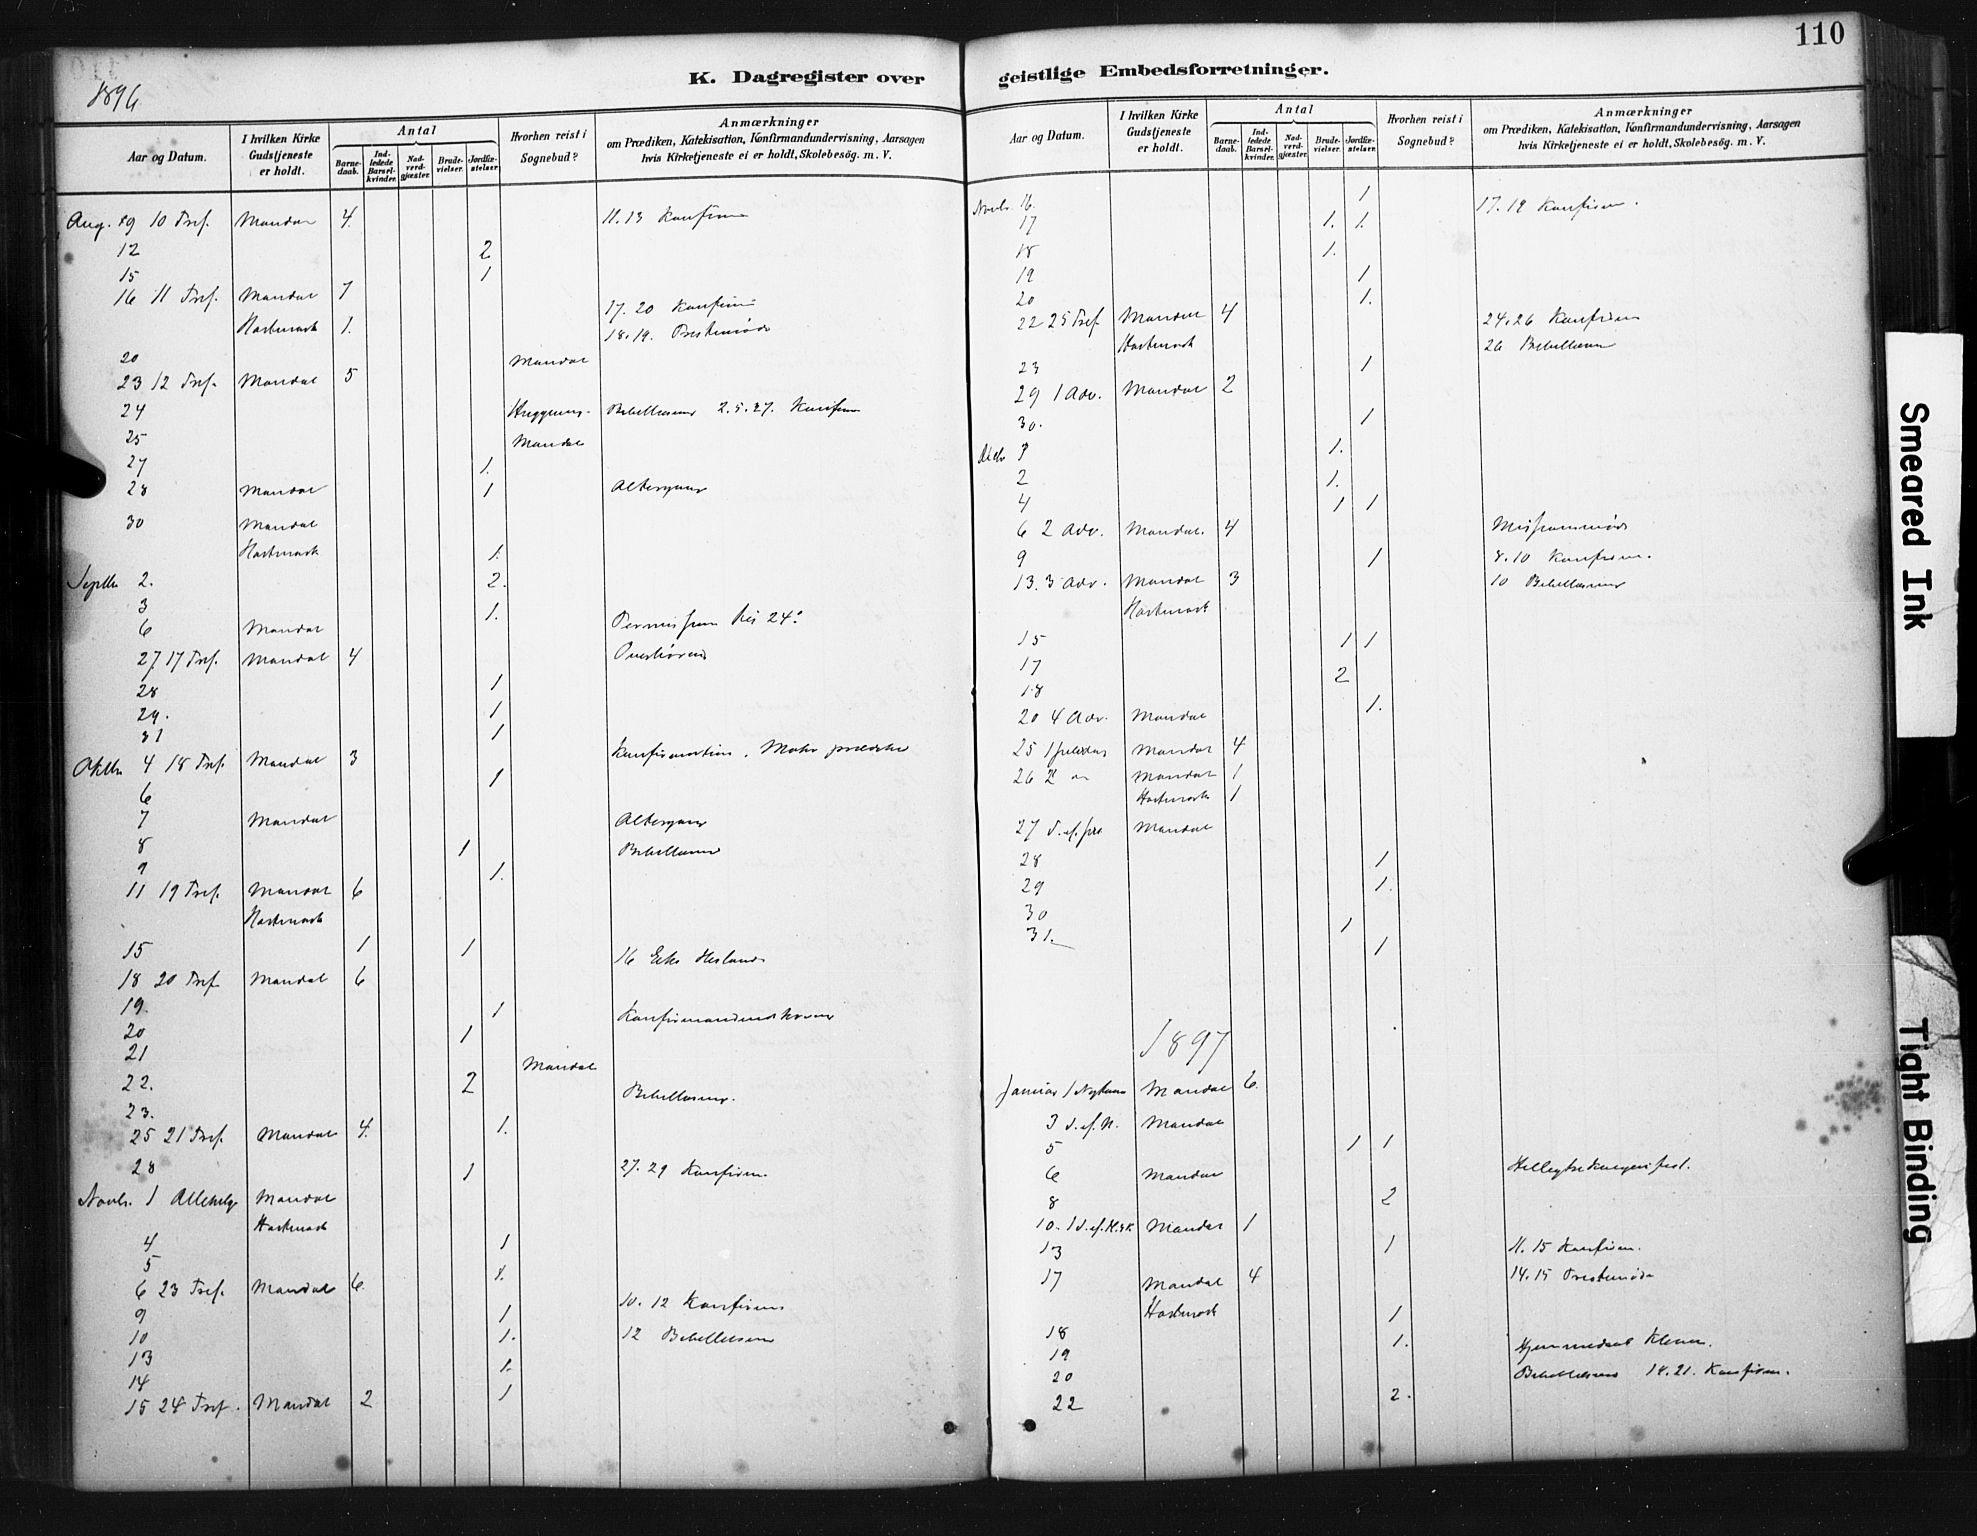 110
1896
K. Dagregister over geistlige Embedsforretninger.
Aar og Datum.
I hvilken Kirke Gudstjeneste er holdt.
Antal
Barnedaab.
Indledede Barselkvinder.
Nadverdgjæster.
Brudevielser.
Jordfæstelser.
Hvorhen reist i Sognebud?
Anmærkninger
om Prædiken, Katekisation, Konfirmandundervisning, Aarsagen
hvis Kirketjeneste ei er holdt, Skolebesøg. m. V.
Aug. 10 Tref. Mandal 4 11.13 Konfirm
12 2
15 1
16 11 Tref. Mandal 7 17.20 Konfirm
1. 18.19. Prestemøde
20 Mandal
23 12 Tref. Mandal 5
24 2.5.27. Konfirm
25 Mandal
27 1.
28 Mandal 1 Altergang
30 Mandal
1.
Septbr 2. 2.
3 1.
6 Mandal 24
27 17 Tref. Mandal 4
28 1
29. 1
31 1
Oktbr 4 18 Tref. Mandal 3 Konfirmation.
6 1
7 Mandal Altergang
8 1 Bibellæsn
9 1.
11 19 Tref. Mandal 6
15 1 1 16
18 20 Tref Mandal 6
19. 1
20 1
21 Mandal
22. 2 Bibellæsn.
23.
25 21 Tref. Mandal 4. 1.
28 1 27.29 Konfirm.
Novbr. 1 Allehelg Mandal
4 1
5
6 23 Tref. Mandal 6. 1.
9 1 10.12 Konfirm
10 1. 12 Bibellæsn
13 1.
14
15 24 Tref. Mandal 2 1
Aar og Datum.
I hvilken Kirke Gudstjeneste er holdt.
Antal
Barnedaab.
Indledede Barselkvinder.
Nadverdgjæster.
Brudevielser.
Jordfæstelser.
Hvorhen reist i Sognebud?
Anmærkninger
om Prædiken, Katekisation, Konfirmandundervisning, Aarsagen
hvis Kirketjeneste ei er holdt, Skolebesøg. m. V.
Novbr. 16. 1 17.19 Konfirm.
17 1. 1.
18 1.
19 1
20 1.
22 25 Tref Mandal 4 24.26 Konfirm
26 Bibellæsn
23 1
29 1 Adv. Mandal 2
30. 1
1.
2 1.
4 1 1
6 2 Adv. Mandal. 4 Missionsmøde
9 1 8.10 Konfirm.
13. 3 Adv. Mandal 3 10 Bibellæsn
15 1 1
17 2
18
20 4 Adv. Mandal 1.
25 1 Juledag Mandal 4
26 2 Mandal 1
1
27 S. ef. Jul Mandal
28 1
29 1.
30 1
31. 1
1897
Januar 1 Nytaar Mandal 6.
3 S. ef. N. Mandal
5 1 1
6 Mandal Helligtrekongersfest.
8 2
10. 1 S. ef. H.3K Mandal 1
13 1 11.15 Konfirm.
17 Mandal 4 14.15 Prestemøde
18 1
19 1.
20 Bibellæsn 14.21. Konfirm.
22 2.
Smeared Ink
Tight Binding